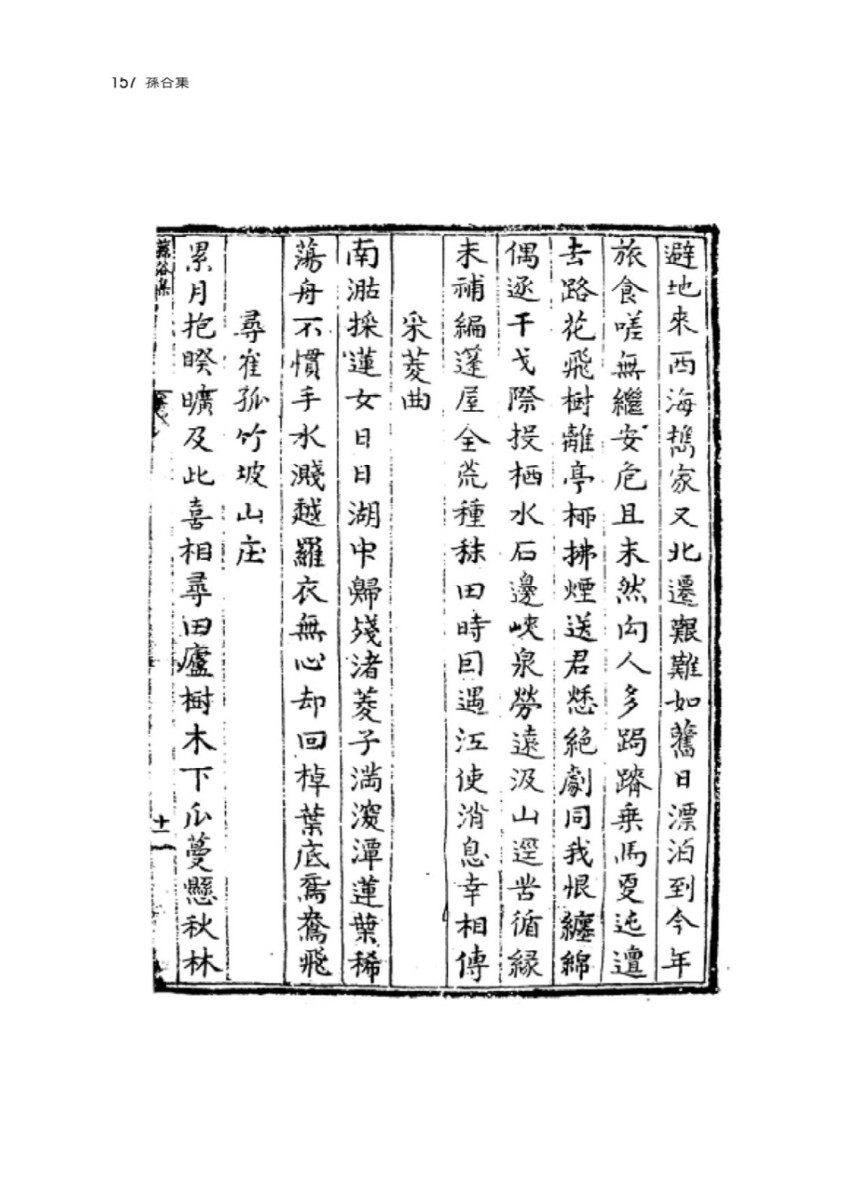 157 孫合集
避地來西海携家又北遷艱難如舊日漂泊到今年
旅食嗟無繼安危且未然向人多跼蹐乗馬更迍邅
去路花飛樹離亭柳拂煙送君愁絶劇同我恨纏綿
偶逐干戈際投栖水石邊峽泉勞遠汲山逕苦循緣
未補編蓬屋全荒種秫田時因遇江使消息幸相傳
采菱曲
南湖採蓮女日日湖中歸残渚菱子満澓潭蓮葉稀
蕩舟不慣手水濺越羅衣無心却回棹葉底鴛鴦飛
尋崔孤竹坡山庄
累月抱暌曠及此喜相尋田廬樹木下瓜蔓懸秋林
蓀谷集
十一